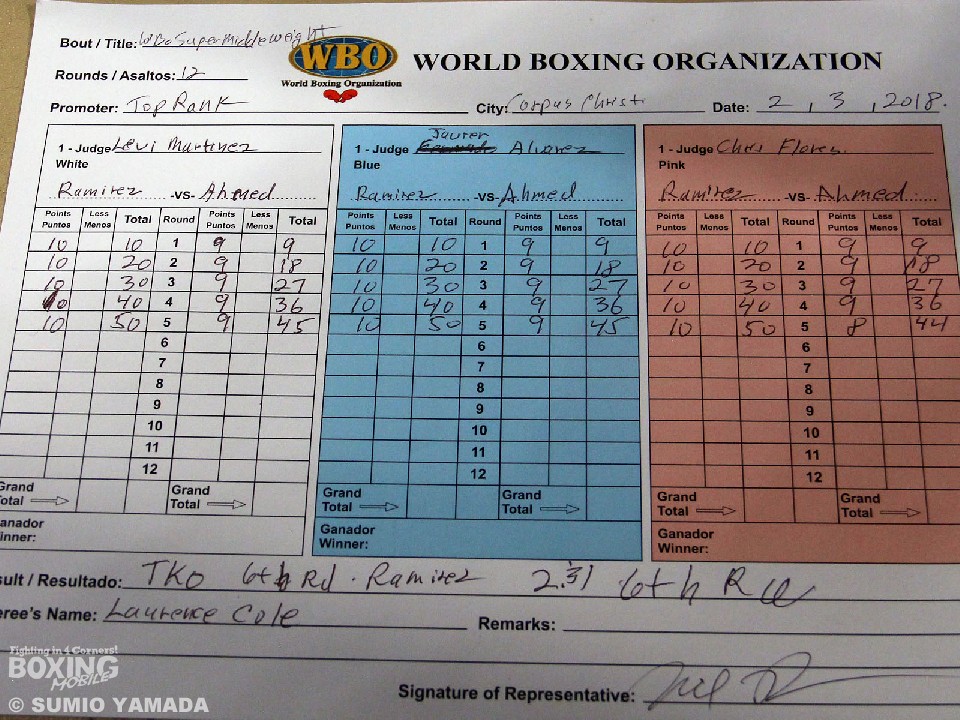 Bout / Title: WBO Super Middleweight
WBO
World Boxing Organization
WORLD BOXING ORGANIZATION
Rounds / Asaltos: 12
Promoter: Top Rank City: Corpus Christi Date: 2, 3, 2018.
1 - Judge Levi Martinez
White
Ramirez -vs- Ahmed
Points Puntos Less Menos Total Round Points Puntos Less Menos Total
10 10 1 9 9
10 20 2 9 18
10 30 3 9 27
10 40 4 9 36
10 50 5 9 45
6
7
8
9
10
11
12
Grand Total Grand Total
anador
inner:
Jaurer
1 - Judge Alvarez
Blue
Ramirez -vs- Ahmed
Points Puntos Less Menos Total Round Points Puntos Less Menos Total
10 10 1 9 9
10 20 2 9 18
10 30 3 9 27
10 40 4 9 36
10 50 5 9 45
6
7
8
9
10
11
12
Grand Total Grand Total
Ganador
Winner:
1 - Judge Chris Flores
Pink
Ramirez -vs- Ahmed
Points Puntos Less Menos Total Round Points Puntos Less Menos Total
10 10 1 9 9
10 20 2 9 18
10 30 3 9 27
10 40 4 9 36
10 50 5 8 44
6
7
8
9
10
11
12
Grand Total Grand Total
Ganador
Winner:
sult / Resultado: TKO 6th Rd. Ramirez 2:31 6th Rd
eree's Name: Laurence Cole
Remarks:
Signature of Representative:
Fighting in 4 Corners!
BOXING
MOBILE
© SUMIO YAMADA